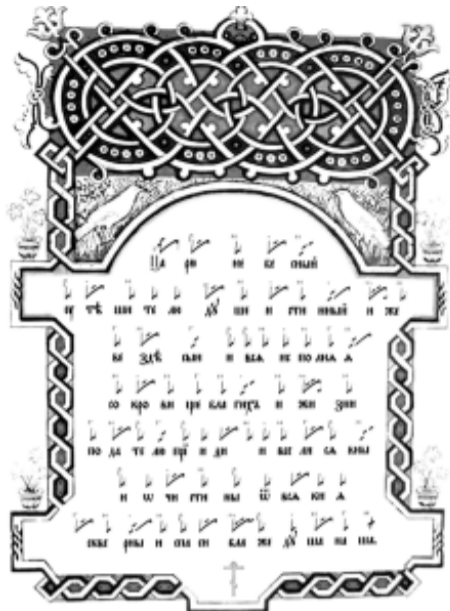 Ца рю не бе сный
оу тѣ ши те лю дꙋ ше и сти нный и же
ве здѣ сый и всѧ ис по лнѧ ѧ
со кро ви ще бла гихъ и жи зни
по да те лю прї и ди и все ли сѧ вны
и ѡ чи сти ны ѿ всѧ киѧ ѧ
скве рны и спа си бла же дꙋ ша на ша